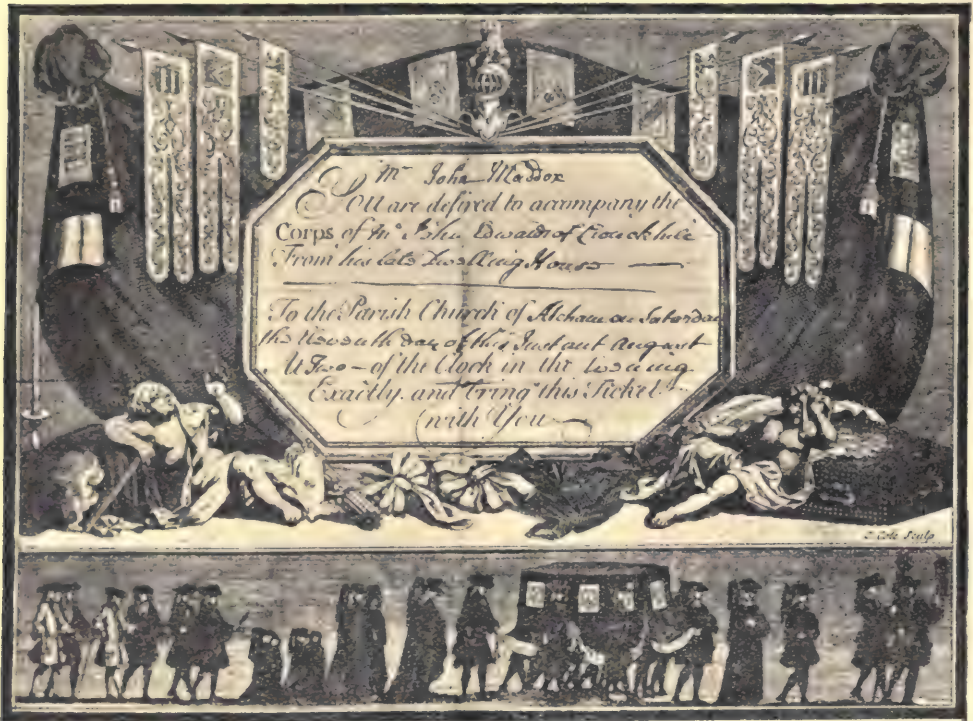 Mr John Maddox
You are desired to accompany the
Corps of Mr John Edwards of Crouckhill
From his late Dwelling House
To the Parish Church of Alcham on Saturday
the Eleventh day of this Instant August
At Two of the Clock in the Evening
Exactly, and bring this Ticket
with You
Cole Sculp